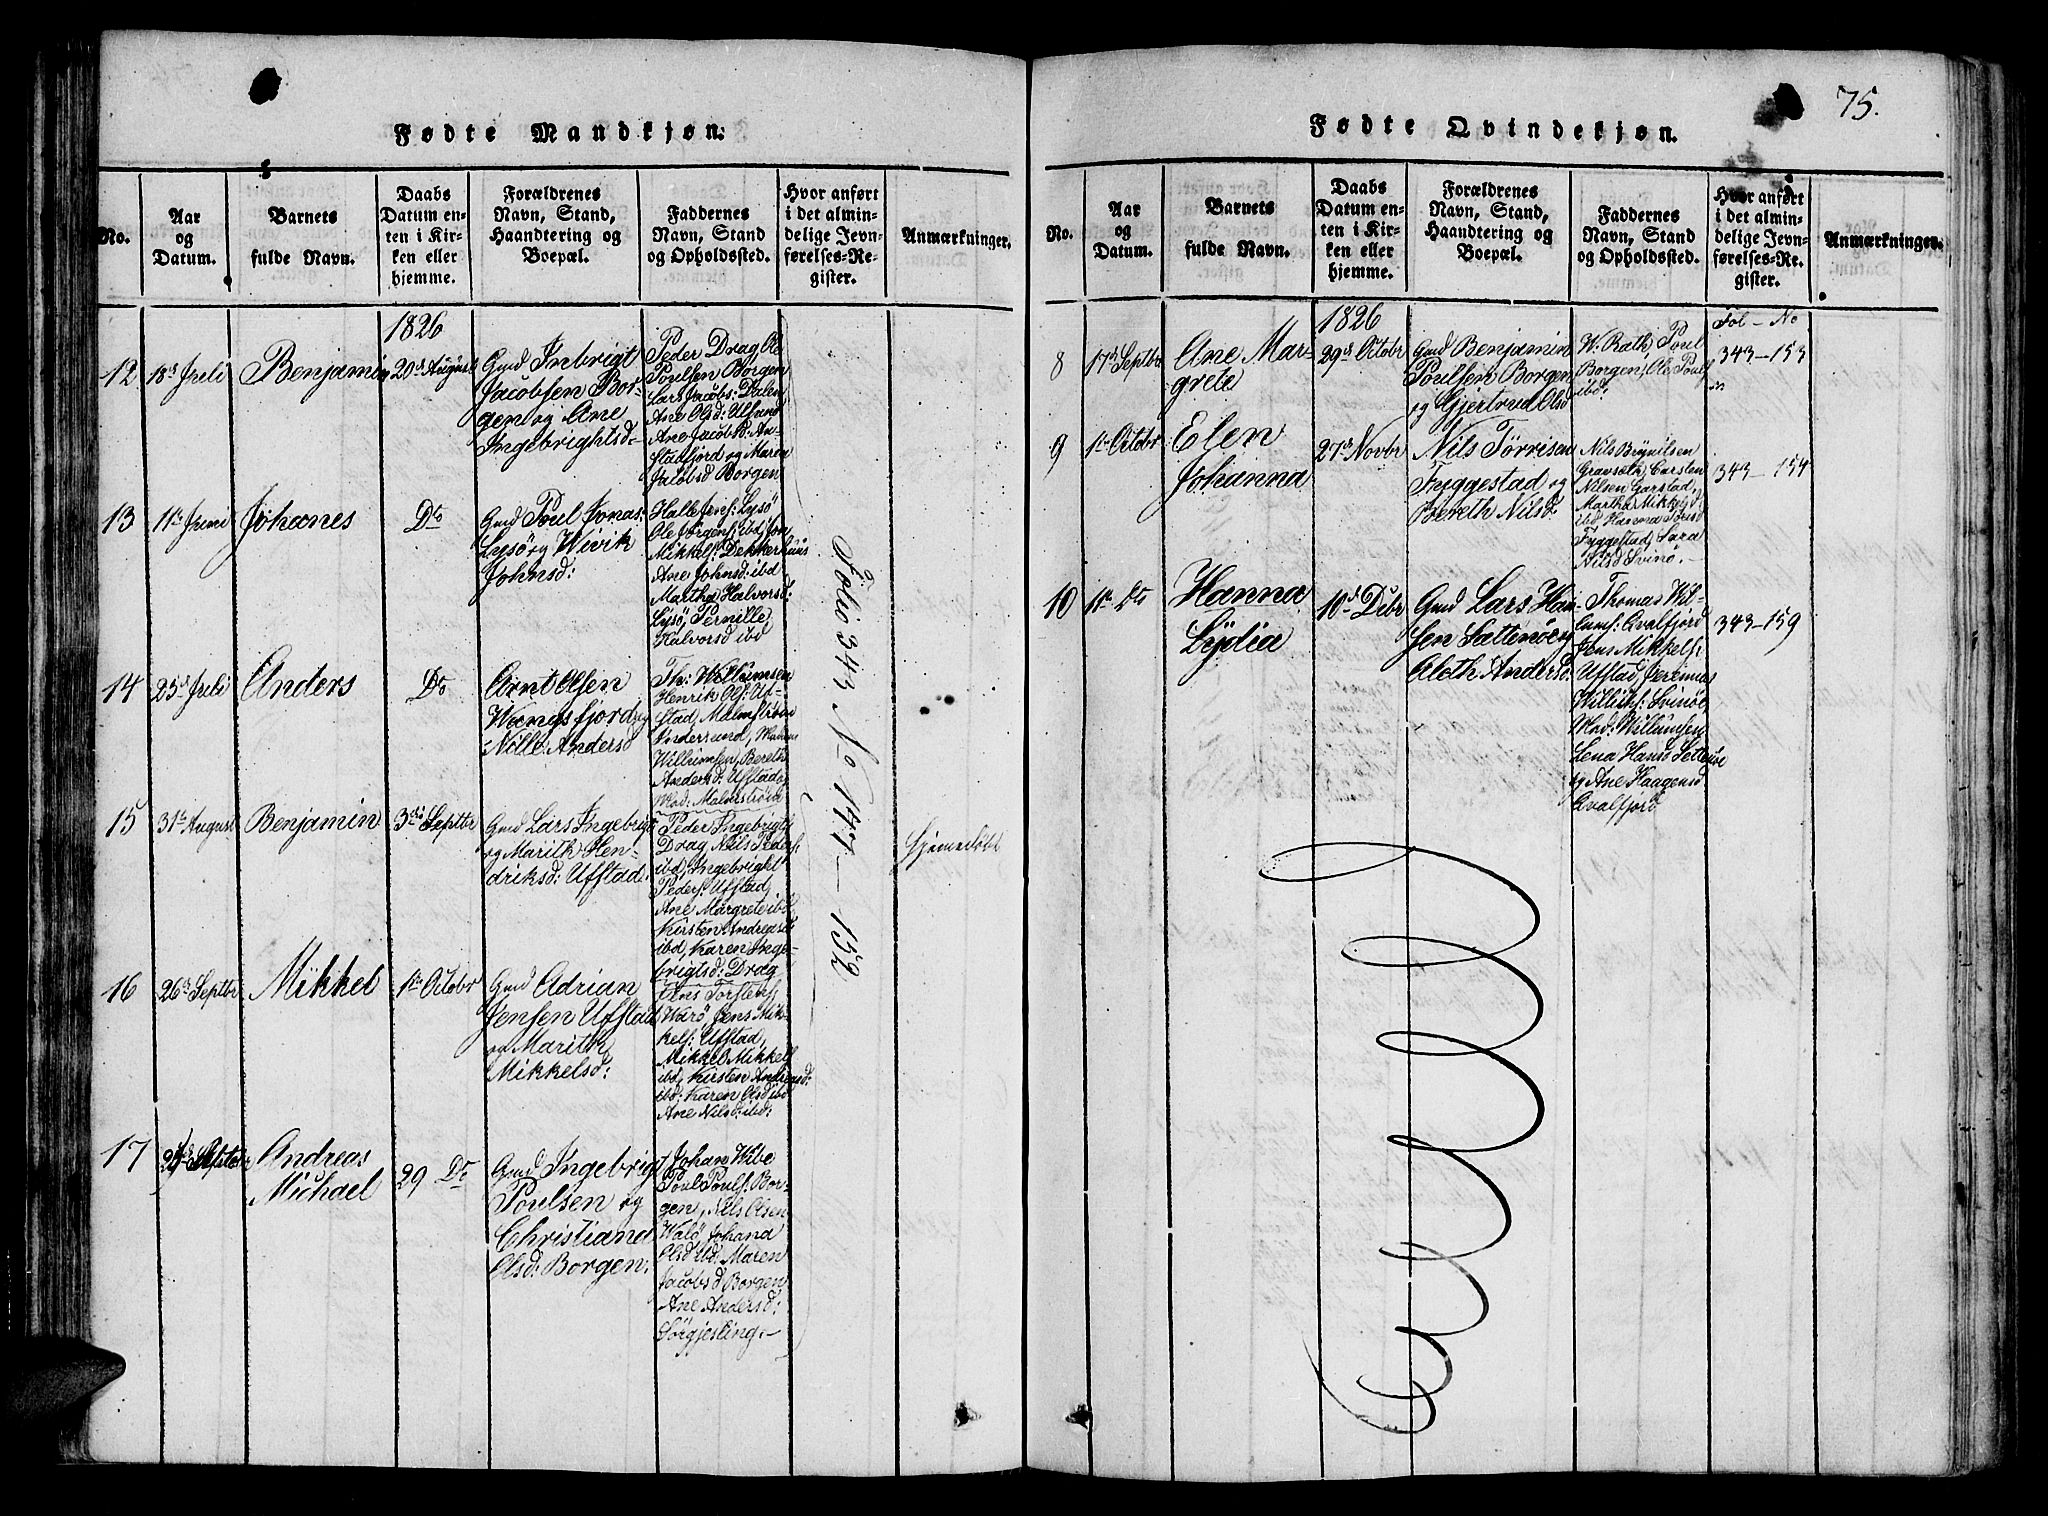 Fødte Mandkjøn.
No.
Aar
og
Datum.
Barnets
fulde Navn.
Daabs
Datum en-
ten i Kir-
ken eller
hjemme.
Forældrenes
Navn, Stand,
Haandtering og
Boepæl.
Faddernes
Navn, Stand
og Opholdssted.
Hvor anført
i det almin-
delige Jevn-
førelses-Re-
gister.
Anmærkninger.
1826
12
18de Juli
Benjamin
20de August
Gmd Inbrigt
Jacobsen Bor-
gen og Ane
Ingebrightsd
Peder Drag Ole
Poulsen Borgen
Lars Jacobs: Dalen
Ane Olsd: Ufstad
Ane Jacobsd: An-
stadfjord og Maren
Jacobsd Borgen
13
11te Juni
Johanes
Do
Gmd Poul Jonas:
Lysø og Wivik
Johnsd:
Halle Jens: Lysø
Ole Jörgens: ibd Jon
Mikkels: Dekkerhuus
Ane Johnsd: ibd
Martha Halvorsd:
Lysø, Pernille
Halvorsd ibd
14
25de Juli
Anders
Do
Arnt Olsen
Weungsfjord og
Nille Andersd
Th: Willumsen
Henrik Ols: Uf-
stad, Malmstrøm
Andersund, Madam
Willumsen, Bereth
Andersd: Ufstad,
Mod: Malmstrøm
15
31te August
Benjamin
3die Septbr
Gmd Lars Ingebrigt
og Marith Hen-
driksd: Ufstad
Peder Ingebrigt
Drag Nils Peders:
ibd, Ingebrigt
Peders: Ufstad,
Ane Margrete ibd
Kirsten Andreasd:
ibd, Karen Inge-
brigtsd: Drag
Hjemmedøbt
16
26de Septbr
Mikkel
1te Octobr
Gmd Adrian
Jensen Ufstad
og Marith
Mikkelsd:
Ans Torstens:
Warø Jens Mik-
kels: Ufstad,
Mikkel Mikkels
ibd, Kirsten Andreasd:
ibd: Karen Olsd ibd
Ane Nilsd: ibd:
17
Septbr
Andreas
Michael
29 Do
Gmd Ingebrigt
Poulsen og
Christiana
Olsd: Borgen:
Johan Wibe
Poul Pouls: Bor-
gen, Nils Olsen
Walø Johana
Olsd ibd: Maren
Jacobsd Borgen
Ane Andersd:
Sørgjesling.
Folio 343 No 147 – 152
75.
Fødte Qvindekjøn.
No.
Aar
og
Datum.
Barnets
fulde Navn.
Daabs
Datum en-
ten i Kir-
ken eller
hjemme.
Forældrenes
Navn, Stand,
Haandtering og
Boepæl.
Faddernes
Navn, Stand
og Opholdssted.
Hvor anført
i det almin-
delige Jevn-
førelses-Re-
gister.
Anmærkninger.
1826
Fol – No
8
17de Septbr
Ane Mar-
grete
29de Octobr
Gmd Benjamin
Poulsen Borgen
og Gjertrud Olsd
W: Rath, Poul
Borgen, Ole Pouls
ibd:
343 – 153
9
1te Octobr
Elen
Johanna
27de Novbr
Nils Törrisen
Fyggestad og
Bereth Nilsd:
Nils Brynilsen
Gravsæth, Carsten
Nilsen Garstad,
Martha Mikkelsd
ibd, Hanna Törisd
Fyggestad, Sara
Nilsd Svinø.
343 – 154
10
1te Do
Hanna
Lydia
10de Debr
Gmd Lars Han-
sen Sattenøe og
Aleth Andersd:
Thomas Wil-
lums: Qvalfjord
Jens Mikkels:
Ufstad, Jeremias
Willichs: Svinøe
Mad: Willumsen
Lena Hansd Settenøe
og Ane Haagensd
Qvalfjord
343 – 159